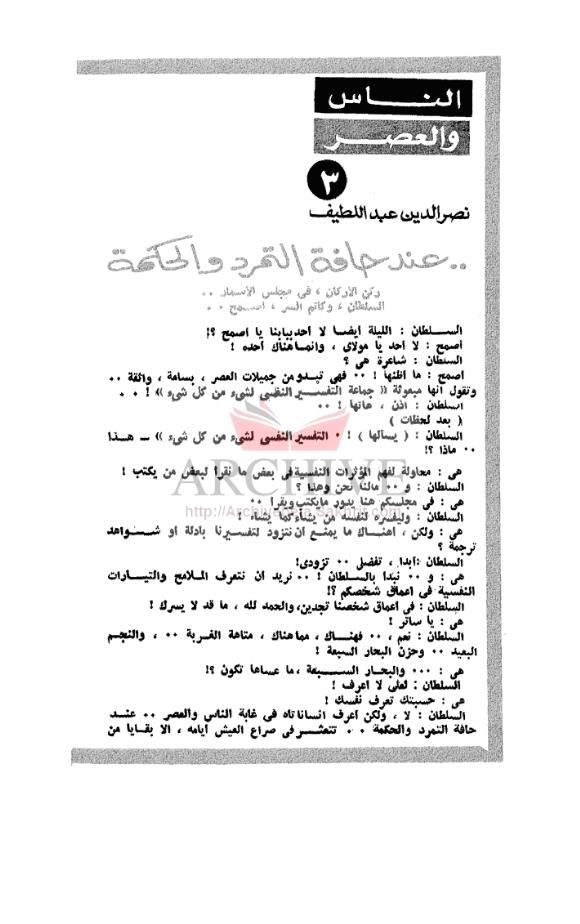 الناس
والعصر
٣
نصر الدين عبد اللطيف
.. عند حافة التمرد والحكمة
ركن الأركان ، في مجلس الأسمار ..
السلطان ، وكاتم السر ، أصمح ..
السلطان : الليلة أيضا لا أحد ببابنا يا أصمح ؟!
أصمح : لا أحد يا مولاى ، وانما هناك أحده !
السلطان : شاعرة هى ؟
أصمح : ما أظنها ! .. فهى تبدو من جميلات العصر ، بسامة ، واثقة ..
وتقول انها مبعوثة « جماعة التفسير النفسى لشىء من كل شىء » ! ..
السلطان : اذن ، هاتها ! ..
( بعد لحظات )
السلطان : ( يسألها ) ! . التفسير النفسى لشىء من كل شىء » ــ هذا
.. ماذا ؟!
هى : محاولة لفهم المؤثرات النفسية فى بعض ما نقرأ لبعض من يكتب !
السلطان : و .. مالنا نحن وهذا ؟
هى : فى مجلسكم هنا يدور مايكتب ويقرأ ..
السلطان : وليفسره لنفسه من يشاء كما يشاء !
هى : ولكن ، أهناك ما يمنع أن نتزود لتفسيرنا بأدلة أو شواهد
ترجمة ؟
السلطان : أبدا ، تفضلى .. تزودى!
هى : و .. نبدأ بالسلطان ! .. نريد أن نتعرف الملامح والتيارات
النفسية فى أعماق شخصكم ؟!
السلطان : فى أعماق شخصنا تجدين، والحمد لله ، ما قد لا يسرك !
هى : يا ساتر !
السلطان : نعم ، .. فهناك ، مما هناك ، متاهة الغربة .. ، والنجم
البعيد .. وحزن البحار السبعة !
هى : ... والبحار السبعة ، ما عساها تكون ؟!
السلطان : لعلى لا أعرف !
هى : حسبتك تعرف نفسك !
السلطان : لا ، ولكن أعرف انسانا تاه فى غابة الناس والعصر .. عند
حافة التمرد والحكمة .. تتعثر فى صراع العيش أيامه ، الا بقايا من
ARCHIVE
http://Archivebeta.Sakhrit.com